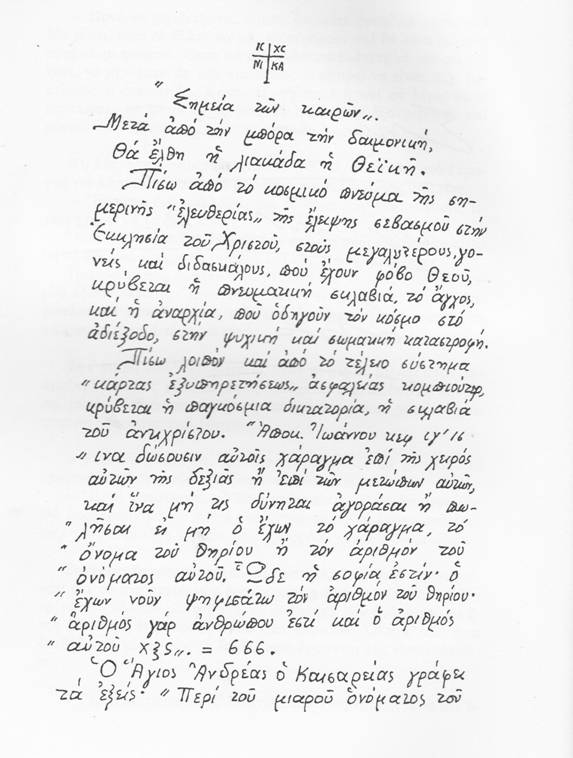 IC XC
NI KA
"Σημεία τῶν καιρῶν„.
Μετά ἀπό τήν μπόρα τήν δαιμονική,
Θά ἔλθη ἡ λιακάδα ἡ Θεϊκή.
Πίσω ἀπό τό κοσμικό πνεῦμα τῆς ση-
μερινῆς "ἐλευθερίας„ τῆς ἔλειψης σεβασμοῦ στήν
Ἐκκλησία τοῦ Χριστοῦ, στούς μεγαλυτέρους, γο-
νεῖς καί διδασκάλους, πού ἔχουν φόβο Θεοῦ,
κρύβεται ἡ πνευματική σκλαβιά, τό ἄγχος,
καί ἡ ἀναρχία, πού ὁδηγοῦν τόν κόσμο στό
ἀδιέξοδο, στήν ψυχική καί σωματική καταστροφή.
Πίσω λοιπόν καί ἀπό τό τέλειο σύστημα
"κάρτας ἐξυπηρετήσεως„ ἀσφαλείας κομπιοῦτερ,
κρύβεται ἡ παγκόσμια δικτατορία, ἡ σκλαβιά
τοῦ ἀντιχρίστου. "Ἀποκ. Ἰωάννου κεφ ιγ' 16
"ινα δώσουσιν αὐτοῖς χάραγμα ἐπί τῆς χειρός
αὐτῶν τῆς δεξιᾶς ἤ ἐπί τῶν μετώπων αὐτῶν,
καί ἵνα μή τις δύνηται ἀγοράσαι ἤ πω-
"λῆσαι εἰ μή ὁ ἔχων τό χάραγμα, τό
"ὄνομα τοῦ θηρίου ἤ τόν ἀριθμόν τοῦ
"ὀνόματος αὐτοῦ. Ὧδε ἡ σοφία ἐστίν· ὁ
"ἔχων νοῦν ψηφισάτω τόν ἀριθμόν τοῦ θηρίου·
"ἀριθμός γάρ ἀνθρώπου ἐστί καί ὁ ἀριθμός
"αὐτοῦ χξς„. = 666.
Ὁ Ἅγιος Ἀνδρέας ὁ Καισαρείας γράφει
τά ἑξεῖς· "Περί τοῦ μιαροῦ ὀνόματος τοῦ